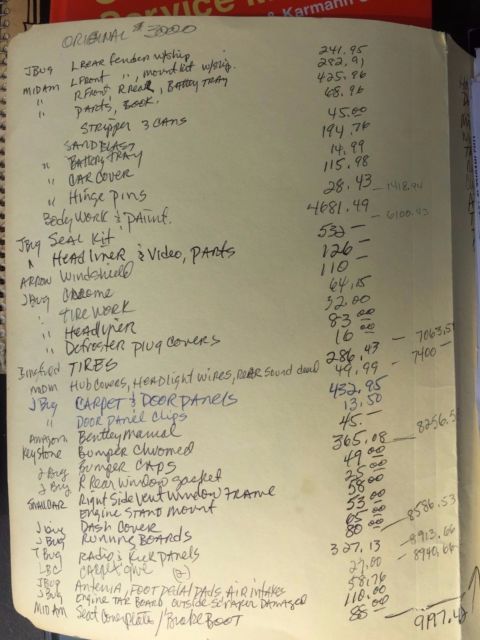 Service M
& Karmann
ORIGINAL $3000
JBug L REAR fender w/ship 241.95
MIDAM L FRONT " , mount kit w/ship. 292.91
" R Front R Rear, BATTERY TRAY 425.96
" PARTS, BOOK. 68.96
STRIPPER 3 CANS 45.00
SANDBLAST 194.76
" BATTERY TRAY 14.99
" CAR COVER 115.98
" Hinge pins 28.43 - 1418.94
BODY WORK & PAINT. 4681.49 - 6100.43
JBug SEAL KIT 532 -
" HEADLINER & Video, PARTS 126 -
ARROW Windshield 110 -
JBug Chrome 64.15
" TIRE WORK 32.00
" HEADLINER 83.00
" Defroster plug covers 16.00
TIRES 286.43 - 7063.5
MIDAM HUB COVERS, HEADLIGHT WIRES, REAR Sound dead 49.99 - 7400 -
JBug CARPET & DOOR PANELS 432.95
" DOOR PANEL CLIPS 13.50
Bentley Manual 45.-
Keystone Bumper Chromed 365.08 - 8256.5
JBug Bumper CAPS 49.00
JBug R REAR window gasket 25.00
SMALLCAR Right Side Vent Window FRAME 58.00
ENGINE STAND MOUNT 53.00
JBug DASH COVER 65.00
JBug RUNNING BOARDS 80.00 - 8586.53
JBug RADIO & KICK PANELS 327.13 - 8913.66
LBC CARPET GLUE (2) 27.00 - 8940.66
JBug Antenna, FOOT pedal pads, AIR INTAKES 58.76
JBug ENGINE TAR BOARD outside scraper DAMAGED 110.00
MIDAM Seat Coverplate / Brake BOOT 88 - 9197.42